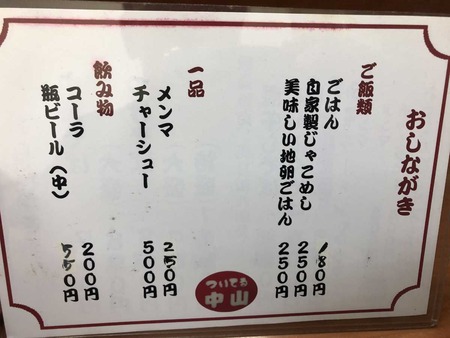 おしながき
ご飯類
ごはん 180円
自家製じゃこめし 250円
美味しい地卵ごはん 250円
一品
メンマ 250円
チャーシュー 500円
飲み物
コーラ 200円
瓶ビール(中) 550円
ついてる
中山